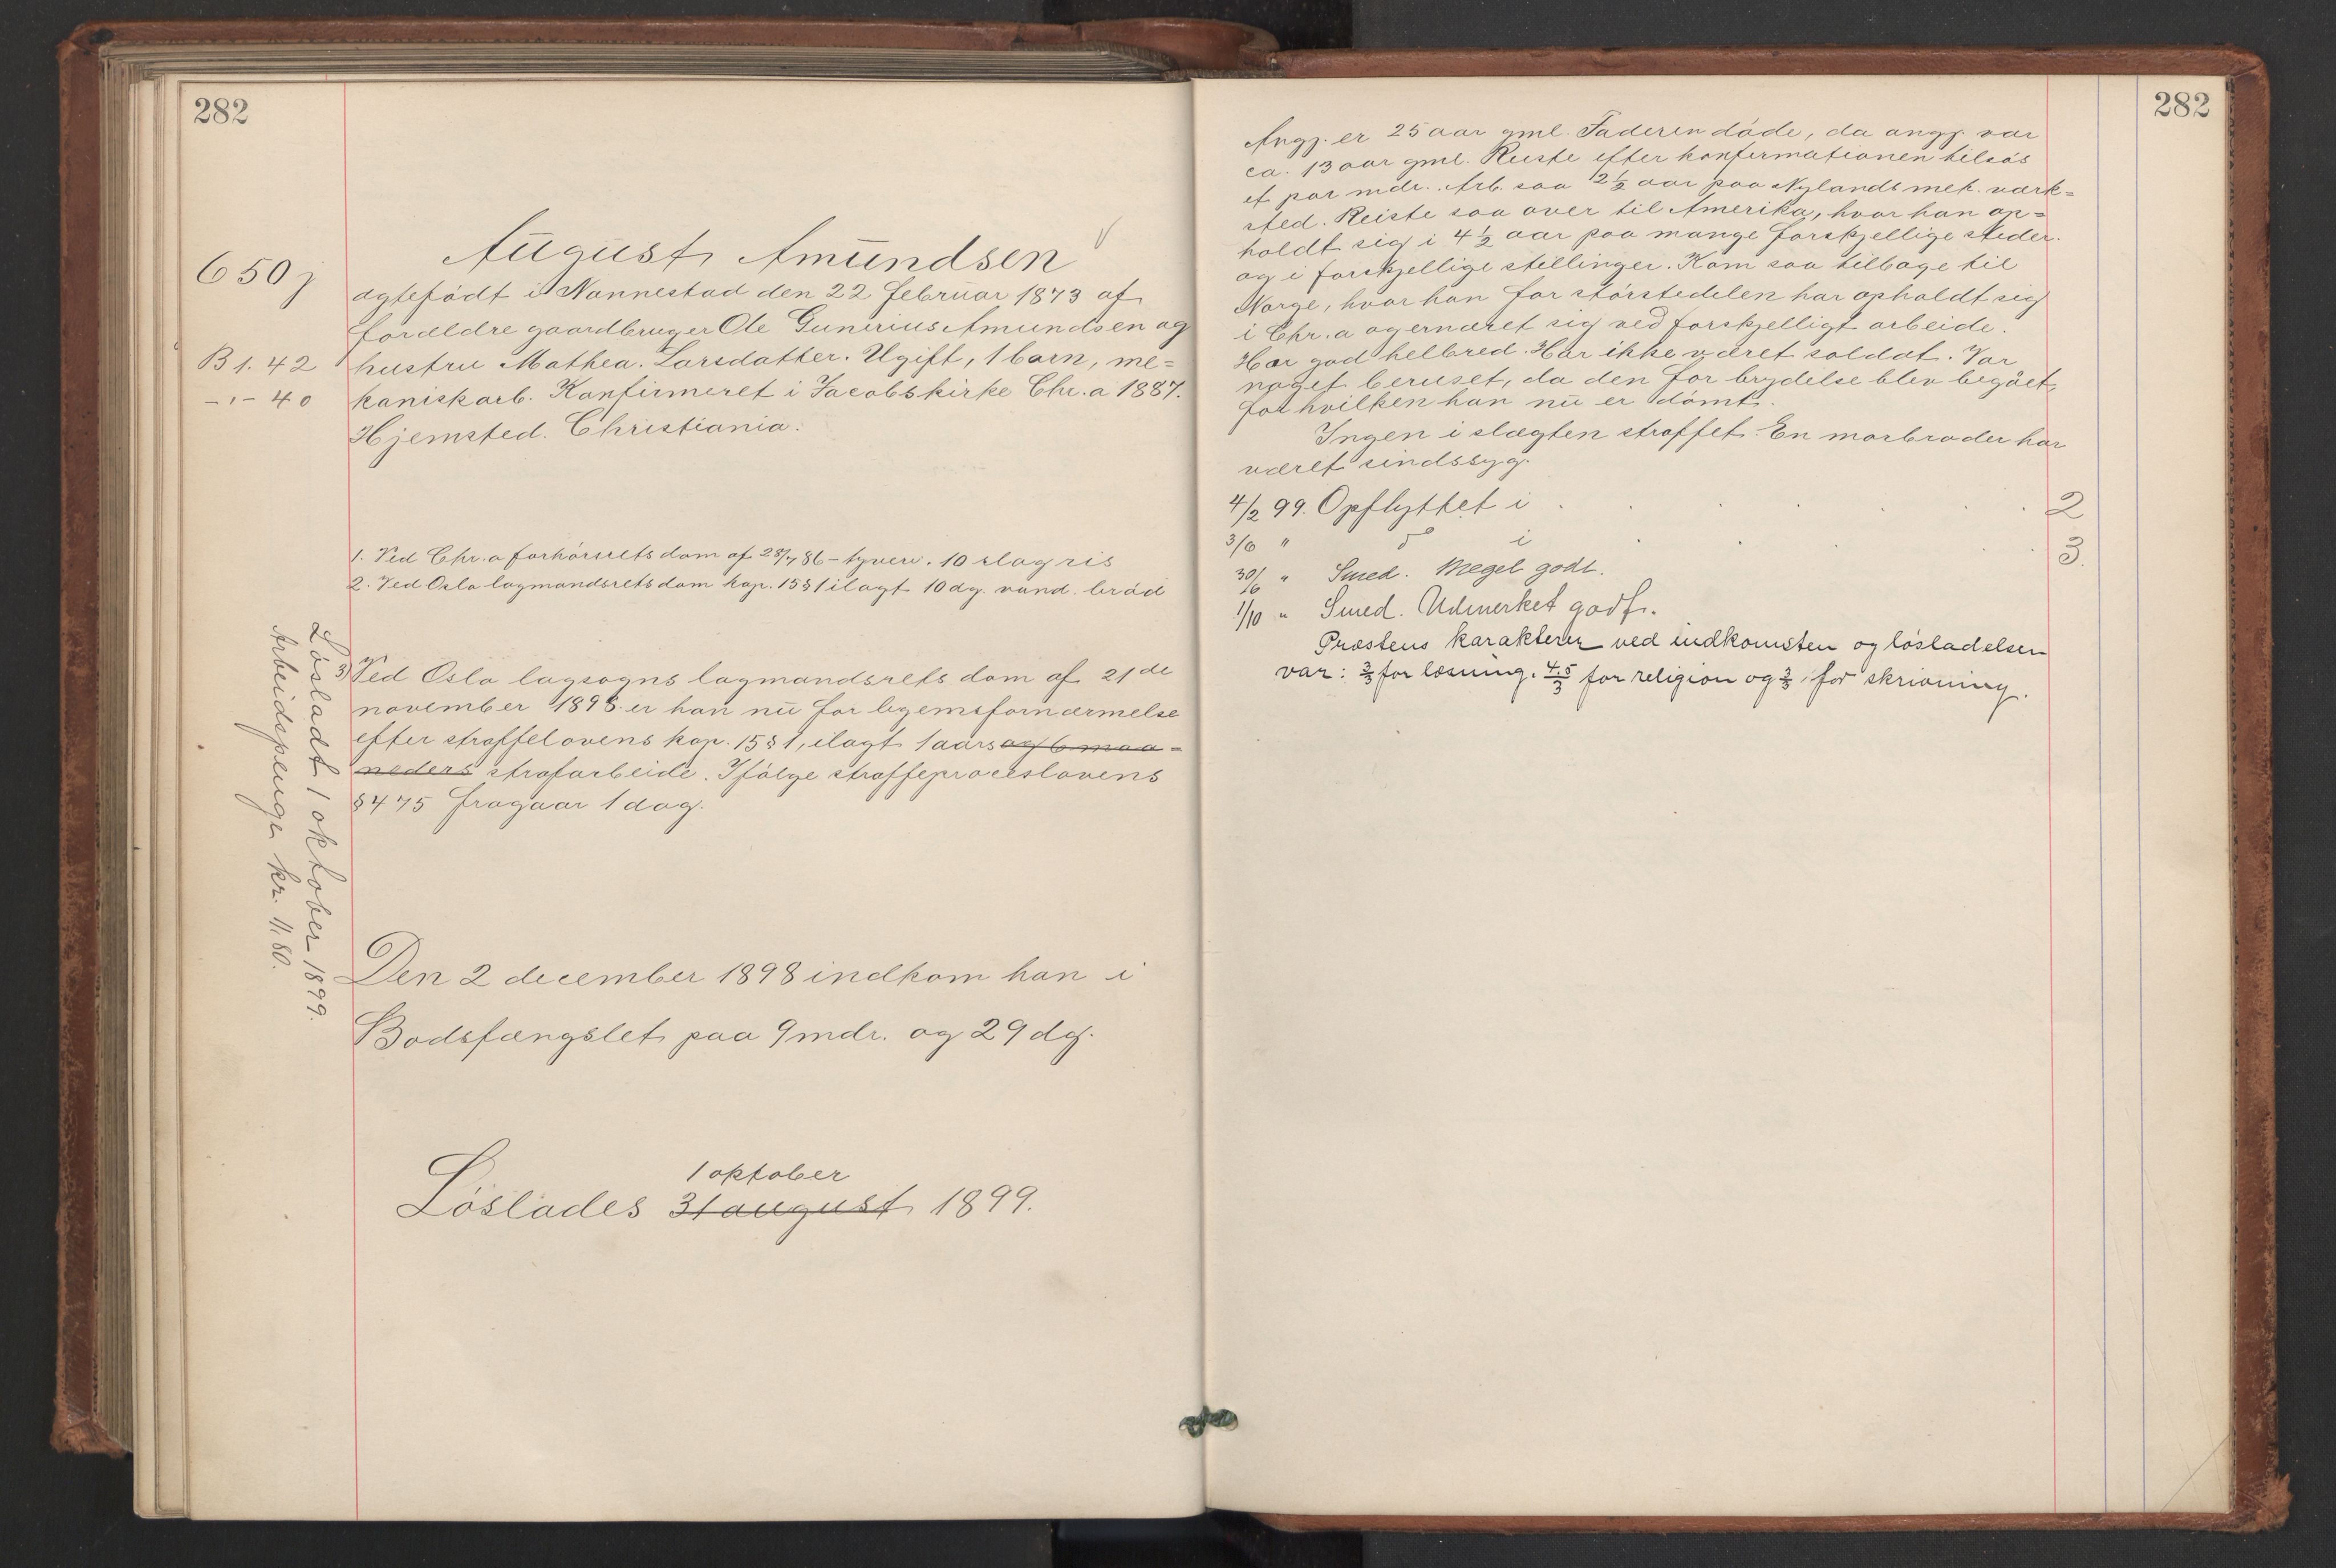 282
August Amundsen
650 j
B 1. 42
-"- 40
ægtefødt i Nannestad den 22 februar 1873 af
forældre gaardbruger Ole Gunerius Amundsen og
hustru Mathea Larsdatter. Ugift, 1 barn, me=
kaniskarb. Konfirmeret i Jacobs kirke Chr.a 1887.
Hjemsted. Christiania.
1. Ved Chr.a forhørsrets dom af 28/7 86 – tyveri. 10 slag ris
2. Ved Oslo lagmandsrets dom kap. 15 § 1 ilagt 10 dg. vand. brød
3) Ved Oslo lagsogns lagmandsrets dom af 21de
november 1898 er han nu for legemsfornærmelse
efter straffelovens kap. 15 § 1, ilagt 1 aars og 6 maa=
neders strafarbeide. Ifølge straffeproceslovens
§ 475 fragaar 1 dag.
Løsladt 1 oktober 1899.
Arbeidspenge kr. 11,80.
Den 2 december 1898 indkom han i
Bodsfængslet paa 9 mdr. og 29 dg.
1 oktober
Løslades 31 august 1899.
282
Angj. er 25 aar gml. Faderen døde, da angj. var
ca. 13 aar gml. Reiste efter konfirmationen tilsøs
et par mdr. Arb. saa 2½ aar paa Nylands mek. værk=
sted. Reiste saa over til Amerika, hvor han op=
holdt sig i 4½ aar paa mange forskjellige steder.
og i forskjellige stillinger. Kom saa tilbage til
Norge, hvor han for størstedelen har opholdt sig
i Chr.a og ernæret sig ved forskjelligt arbeide.
Har god helbred. Har ikke været soldat. Var
noget beruset, da den forbrydelse blev begået,
for hvilken han nu er dømt.
Ingen i slægten straffet. En morbroder har
været sindssyg.
4/2 99. Opflyttet i . . . . . . 2
3/6 " do i . . . . 3.
30/6 " Smed. Meget godt.
1/10 " Smed. Udmerket godt.
Præstens karakterer ved indkomsten og løsladelsen
var: 3/3 for læsning. 4.5/3 for religion og 3/3 for skrivning.